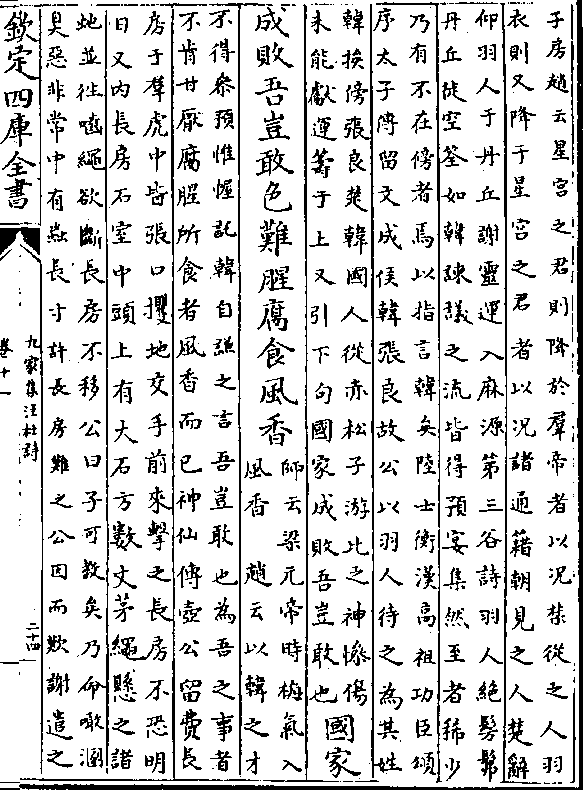 子房趙云星宫之君則降於羣帝者以况禁從之人羽
衣則又降于星宫之君者以况諸通籍朝見之人楚辭
仰羽人于丹丘謝靈運入麻源第三谷詩羽人絶髣髴
丹丘徒空筌如韓諫議之流皆得預宴集然至者稀少
乃有不在傍者焉以指言韓矣陸士衡漢高祖功臣頌
序太子傅留文成侯韓張良故公以羽人待之為其姓
韓挨傍張良楚韓國人從赤松子游比之神慘傷
未能獻運籌于上又引下句國家成敗吾豈敢也國家
成敗吾豈敢色難腥腐食風香師云梁元帝時梅氣入
風香 趙云以韓之才
不得叅預惟幄託韓自謙之言吾豈敢也為吾之事者
不肯甘厭腐腥所食者風香而已神仙傳壺公留費長
房于羣虎中皆張口攫地交手前來擊之長房不恐明
日又内長房石室中頭上有大石方數丈茅繩懸之諸
虵並往嚙繩欲斷長房不移公曰子可教矣乃命噉溷
臭惡非常中有蟲長寸許長房難之公因而歎謝遣之
欽定四庫全書
九家集注杜詩
卷十一
二十四